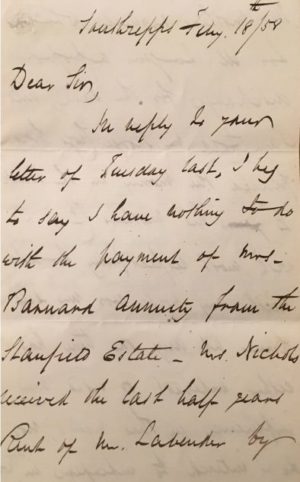 Southrepps Feby. 18th/58
Dear Sir,
In reply to your
letter of Tuesday last, I beg
to say I have nothing to do
with the payment of Mrs.
Barnard annuity from the
Stanfield Estate - Mrs. Nichols
received the last half years
Rent of Mr. Lavender by